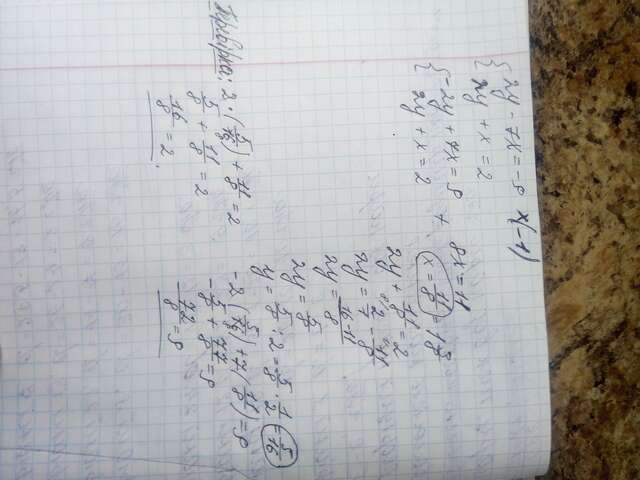 {2y - 7x = -9 x(-1)
{2y + x = 2
{-2y + 7x = 9 +
{2y + x = 2
8x = 11
x = 11/8 = 1 3/8
2y + 11/8 = 2
2y = 2/1 - 11/8
2y = 16-11/8
2y = 5/8
y = 5/8 : 2 = 5/8 · 1/2 = 5/16
Проверка: 2·(5/16) + 11/8 = 2
5/8 + 11/8 = 2
16/8 = 2.
-2(5/16) + 7(11/8) = 9
-5/8 + 77/8 = 9
72/8 = 9